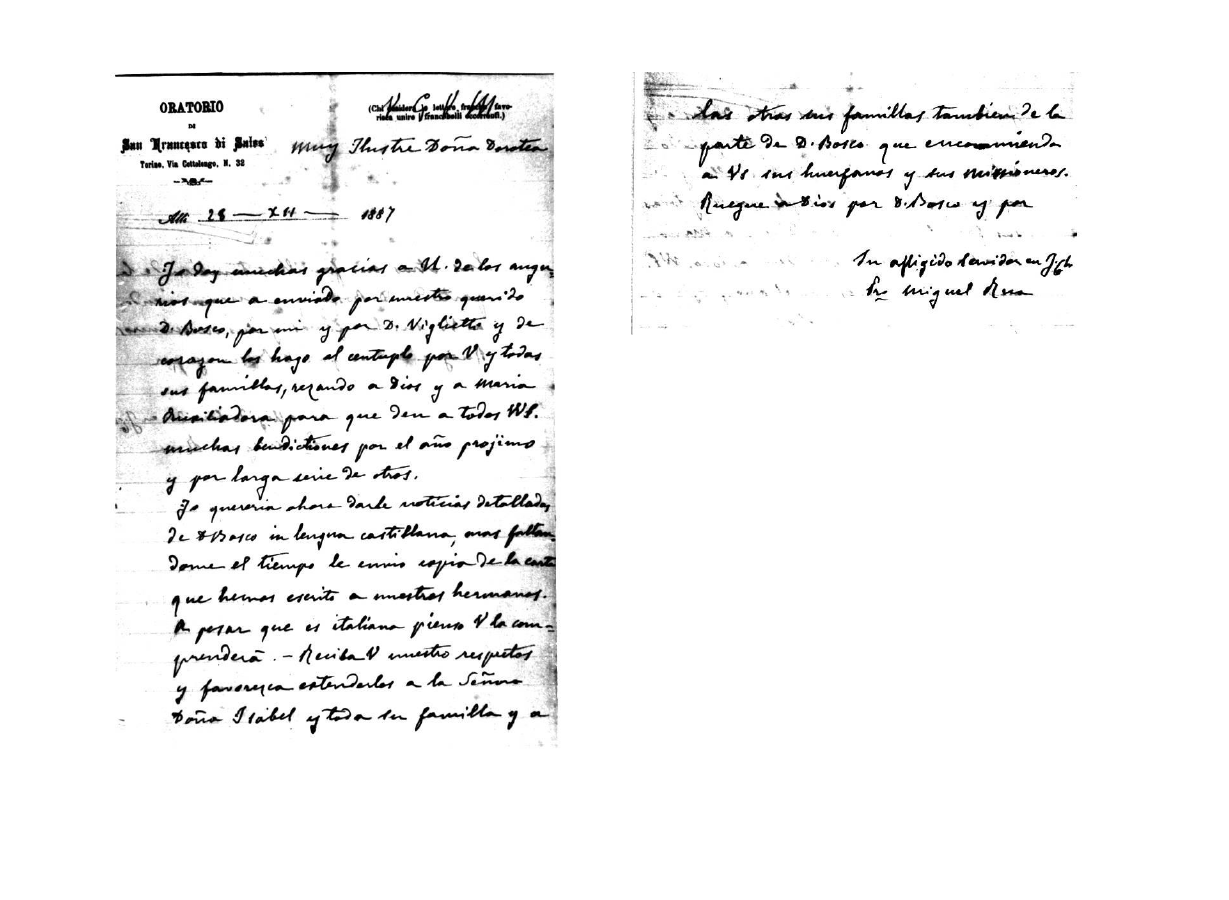 ORATORIO
DI
San Francesco di Sales
Torino, Via Cottolengo, N. 32
(Chi desidera lettere, favo-
risca unire i francobolli occorrenti.)
Muy Ilustre Doña Dorotea
Alli 28 — XII — 1887
Jo doy muchas gracias a U. de los augu-
rios que a enviado por nuestro querido
D. Bosco, por mi y por D. Viglietti y de
corazon los hago al centuplo por V. y todas
sus famillas, rezando a Dios y a Maria
Auxiliadora para que den a todos VS.
muchas bendictiones por el año projimo
y por larga serie de otros.
Jo quereria ahora darle noticias detalladas
de D Bosco in lengua castillana, mas faltan-
dome el tiempo le envio copia de la carta
que hemos escrito a nuestros hermanos.
A pesar que es italiana pienso V la com=
prenderā. – Reciba V nuestro respetos
y favoresca estenderlos a la Señora
Doña Isabel y toda su familla y a
las otras sus famillas tambien de la
parte de D. Bosco que encomienda
a VS sus huerfanos y sus missioneros.
Ruegue a Dios por D. Bosco y por
Su afligido servidor en J.
Pro Miguel Rua